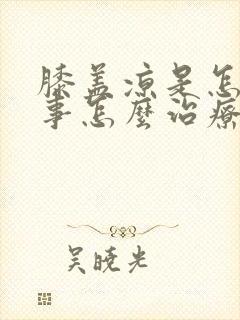 膝盖凉是怎
事怎麼治療
吴晓光